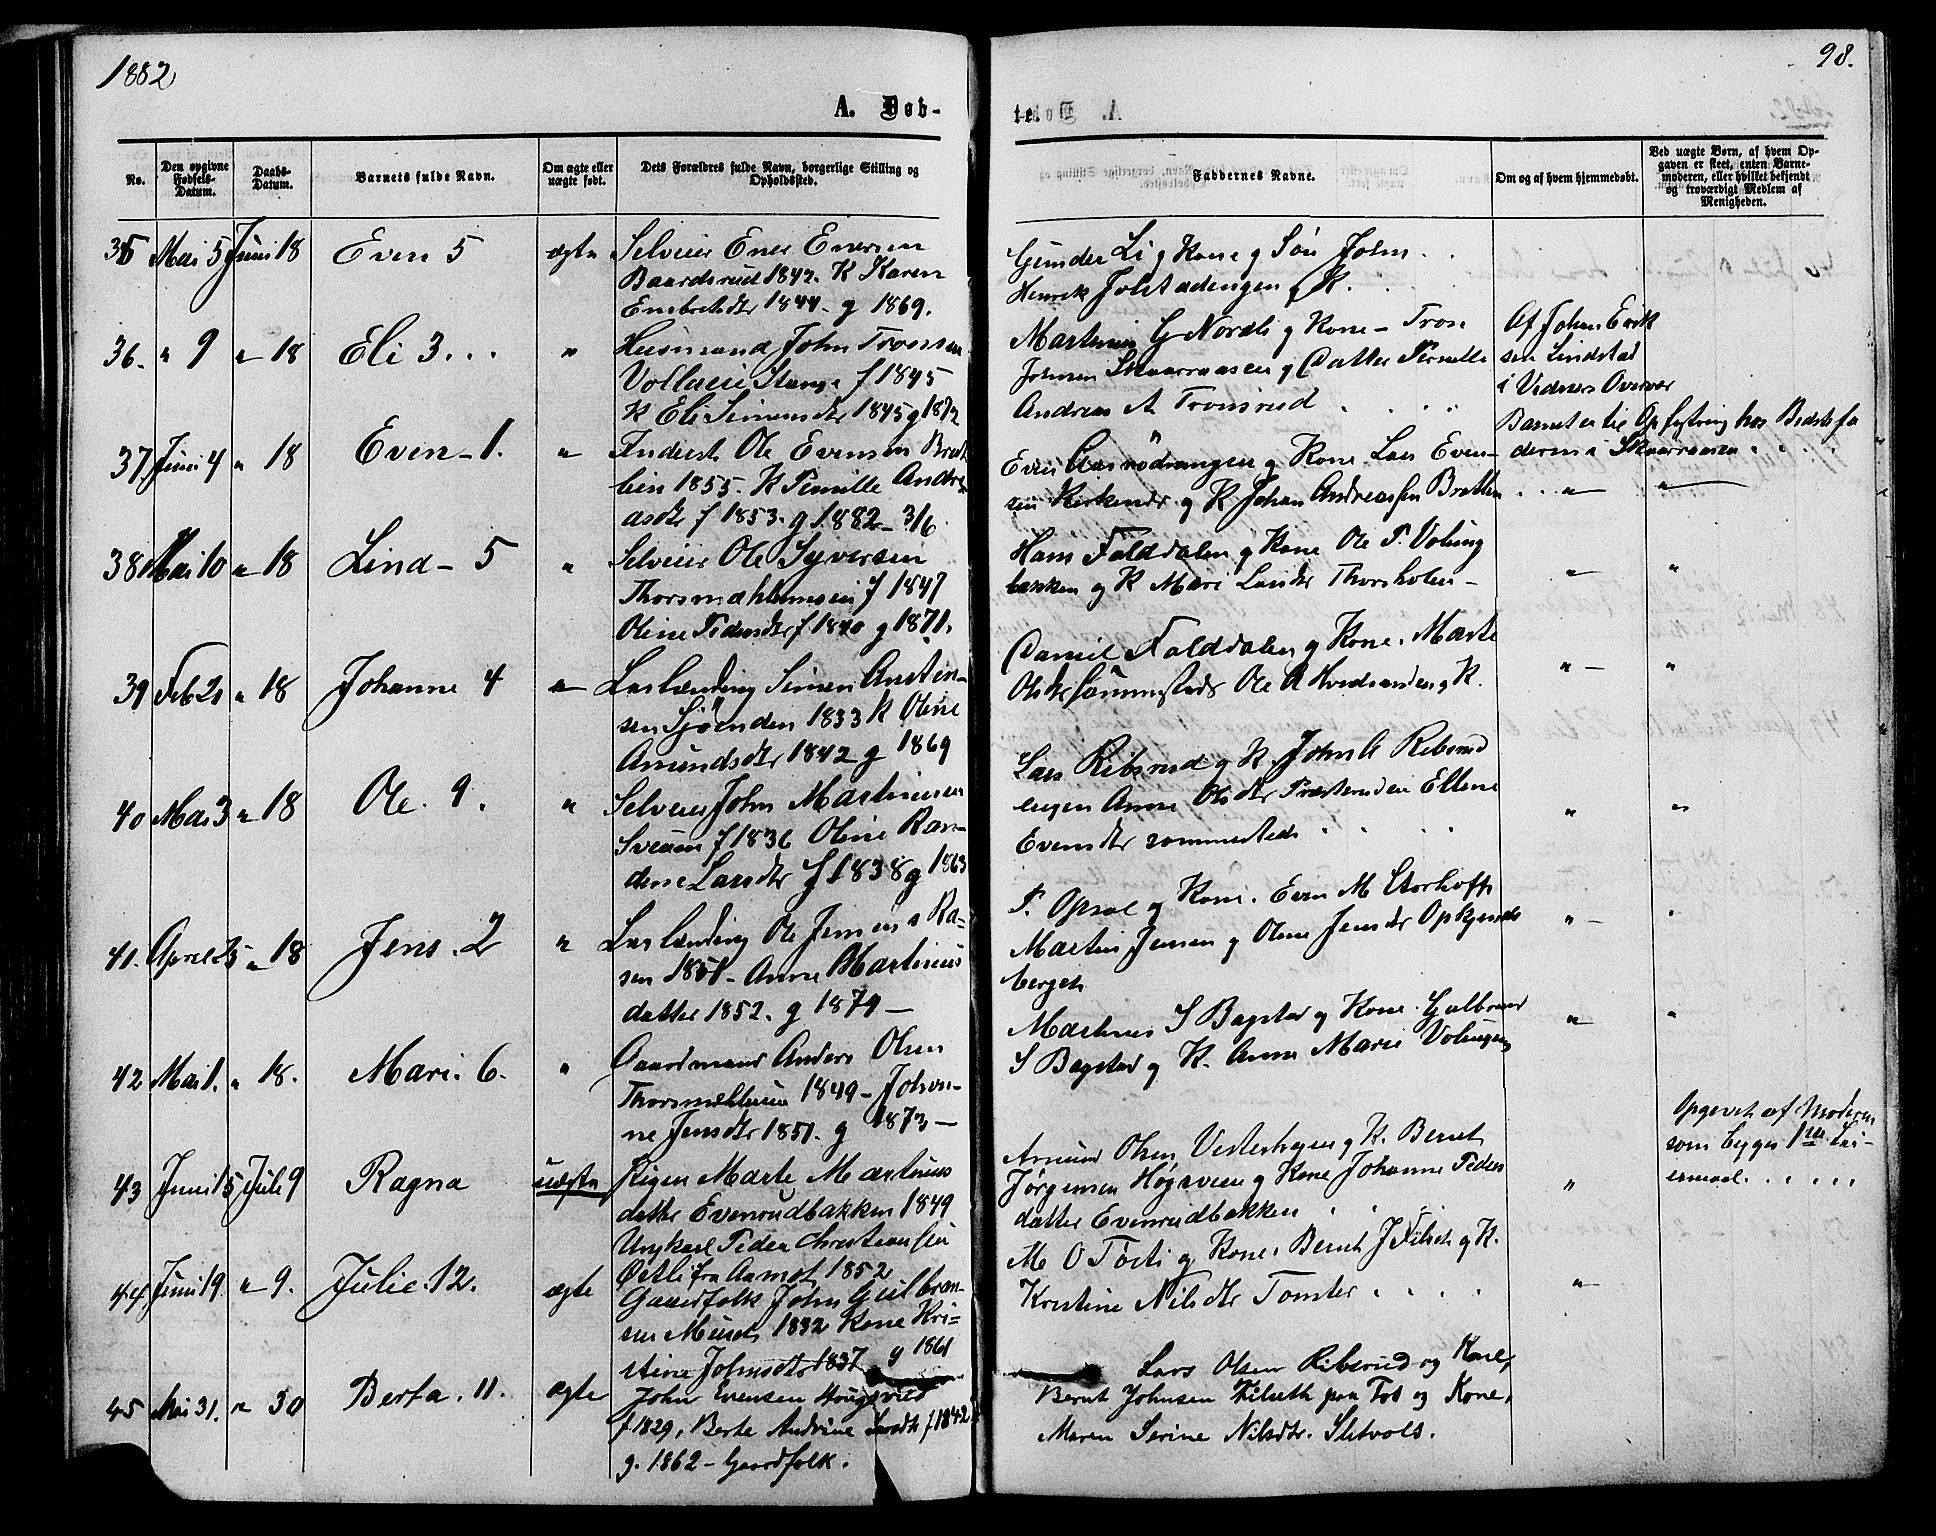 1882
98.
A. Døb-
te.
No.
Den opgivne Fødsels-Datum.
Daabs-Datum.
Barnets fulde Navn.
Om ægte eller uægte født.
Dets Forældres fulde Navn, borgerlige Stilling og Opholdssted.
Faddernes Navne.
Om og af hvem hjemmedøbt.
Ved uægte Børn, af hvem Op-
gaven er skeet, enten Barne-
moderen, eller hvilket bekjendt
og troværdigt Medlem af
Menigheden.
35 Mai 5 Juni 18 Even 5 ægte Selveier Ener Enersen
Baardsrud 1842. K Karen
Embretsdtr 1844 - g 1869.
Gunder Li g Kone g Søn John
Henrik Jolstadengen g K.
36. " 9 " 18 Eli 3 " Husmand John Tronsen
Stange f 1845
K Eli Simensdtr 1845 g 1872
G Nordli g Kone - Tron
Johnsen Skaaraasen g Datter Pernille
Andreas A Tronsrud
Af Johan Erik
sen Lindstad
i Overvær
Barnet er til Opfostring hos Bedstefa
deren i Skaaraasen
37 Juni 4 " 18 Even - 1. " Inderst Ole Evensen Brat
lien 1855. K Pernille Andre
asdtr f 1853. g 1882 - 3/6
Even g Kone Lars Even-
sen g K Johan Andreassen Bratlien
38 Mai 10 " 18 Lind - 5 " Selveier Ole Syversen
f 1847
Oline Pedersdtr f 1840 g 1871.
Hans Falddalen g Kone Ole P. Volung
bakken g K Mari Larsdtr Thorsholen -
39 Feb 21 " 18 Johanne 4 " Løslænding Simen Austen-
sen Sjøenden 1833 K Oline
Amundsdtr 1842 g 1869
Daniel Falddalen g Kone. Marte
Olsdtr sammesteds Ole A g K.
40 Mai 3 " 18 Ole. 9. " Selveier John Martinusen
Sveum f 1836 Oline Ran-
dine Larsdtr f 1838 g 1863
Lars Ribsrud g K. John Ribsrud
engen Anne Olsdtr Ellene
Evensdtr sammesteds
41. April 25 " 18 Jens. 2 " Løslænding Ole Jensen Ra-
sen 1851 - Anne Martinius
datter 1852. g 1879 -
P. Opsal g Kone. Even M Storhoff
Martin Jensen g Oline Jensdtr
berget
42 Mai 1. " 18. Mari. 6. " Gaardmand Anders Olsen
1849 - Johan-
ne Jensdtr 1851. g 1873 -
Martinus S Bagstad g Kone. Gulbrand
S Bagstad g K. Anne Marie Volungen
43 Juni 15 Juli 9 Ragna uægte Pigen Marte Martinus
datter Evenrudbakken 1849
Ungkarl Peder Christiansen
Østli fra Aamot 1852
Amund Olsen Vesterhagen g K. Bernt
Jørgensen Høgsveen g Kone Johanne Peders
datter Evenrudbakken
Opgivet af Moderen
som begges 1ste Lei-
ermaal.
44 Juni 19. " 9. Julie. 12. ægte Gaardfolk John Gulbran
sen 1832 Kone Kri-
stine Johnsdtr 1837 g 1861
M O Tosti g Kone Bernt J Filset g K.
Kristine Nilsdtr Tomter
45 Mai 31. " 30 Berta. 11. ægte John Evensen Hougsrud
f 1829, Berte Andrine Larsdtr f 1842
g. 1862 - Gaardfolk.
Lars Olsen Ribsrud og Kone,
Bernt Johnsen Filseth paa Tot og Kone,
Maren Serine Nilsdtr. Sletvols.